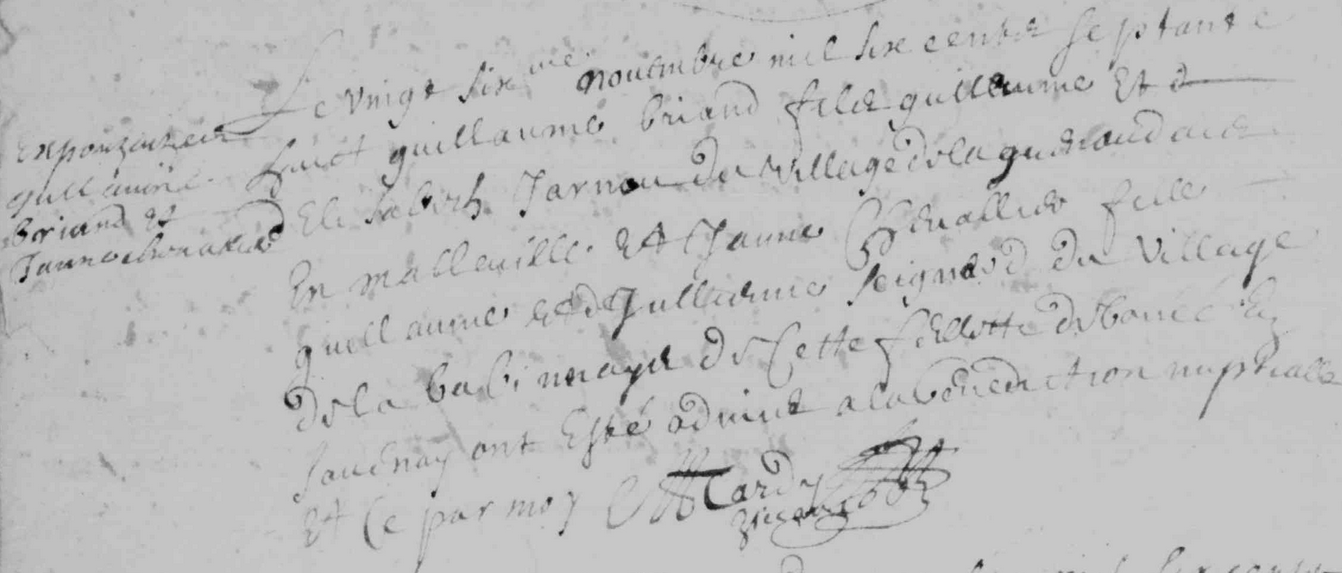 Espouzailles
guillaume
briand et
Janne chevallier
Le vingt six vie novembre mil six cents septante
guillaume briand fils guillaume Et d
Elisabeth Jarnou du village de la
En malleville Et Janne Chevallier fille
guillaume et d Jullienne seignard du village
de la babinnaye de Cette fillette de bouée En
Savenay ont Esté admint a la benediction nuptialle
Et Ce par moy Tardy
vicaire